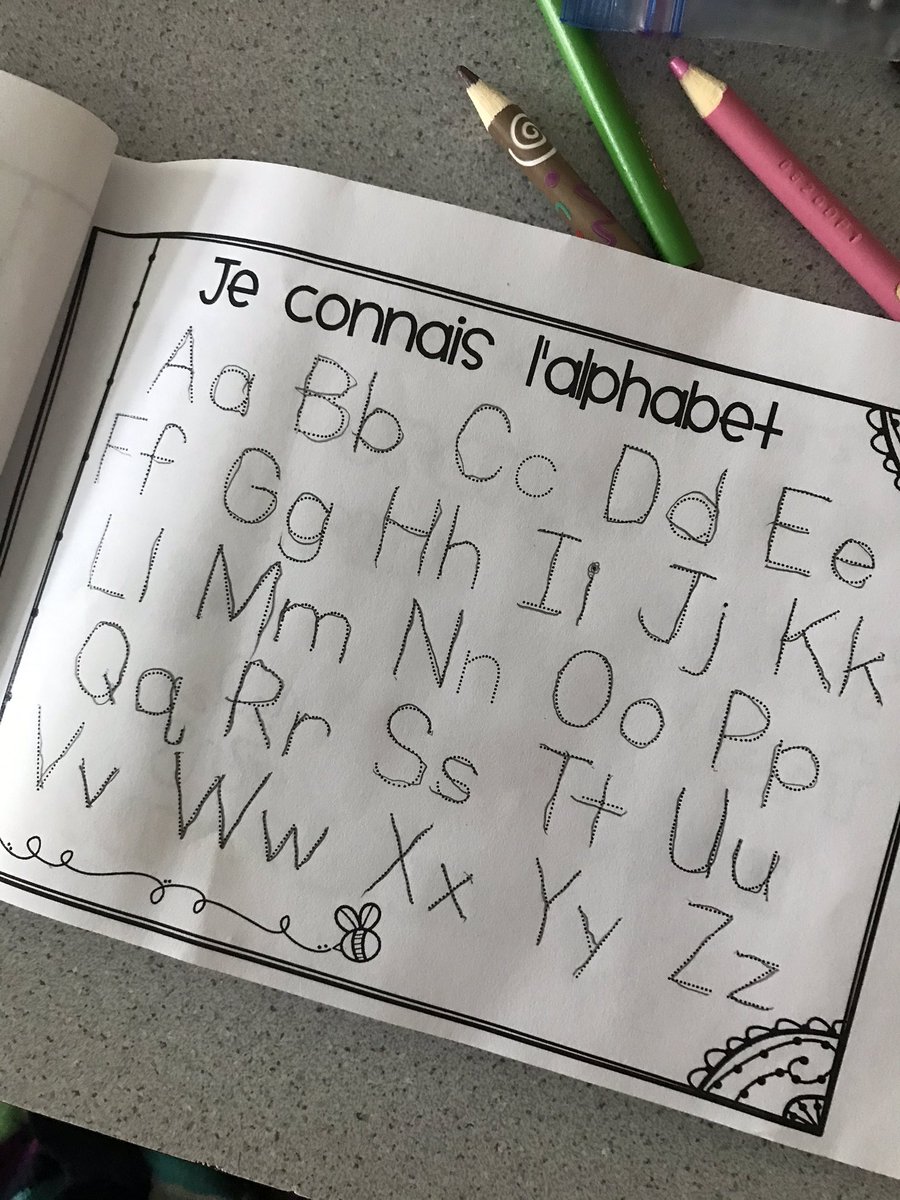 Je connais l'alphabet
Aa Bb Cc Dd Ee
Ff Gg Hh Ii Jj Kk
Ll Mm Nn Oo Pp
Qq Rr Ss Tt Uu
Vv Ww Xx Yy Zz